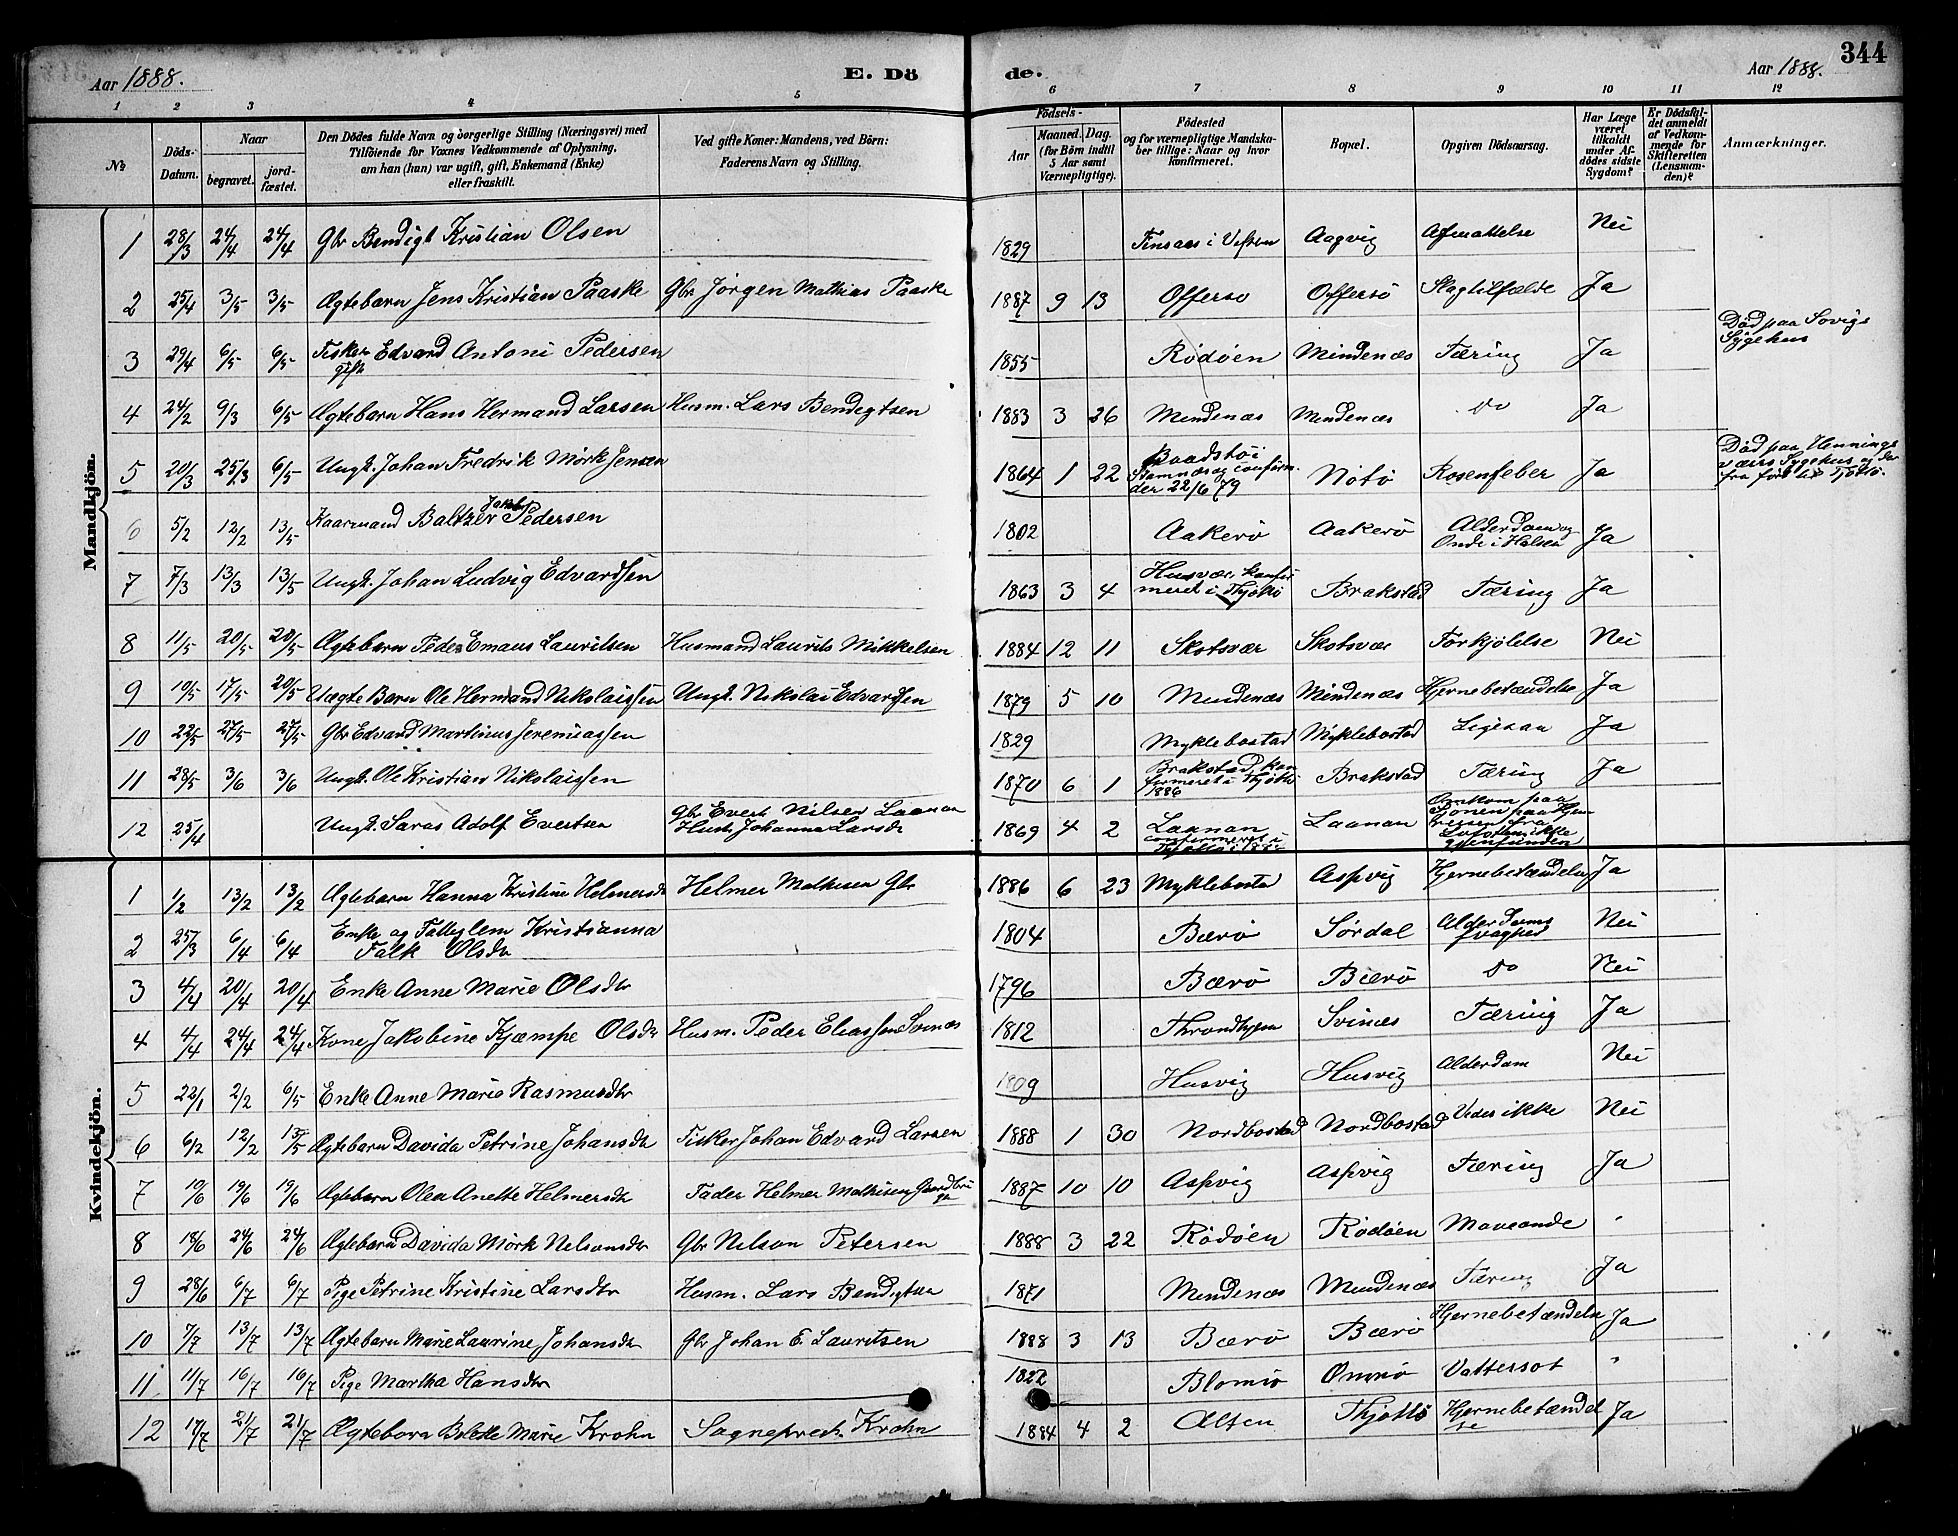 344
Aar 1888. E. Dö de. Aar 1888.
1 2 3 4 5 6 7 8 9 10 11 12
No
Döds-Datum.
Naar
begravet. jord-fæstet.
Den Dödes fulde Navn og borgerlige Stilling (Næringsvei) med
Tilföiende for Voxnes Vedkommende af Oplysning,
om han (hun) var ugift, gift, Enkemand (Enke)
eller fraskilt.
Ved gifte Koner: Mandens, ved Börn:
Faderens Navn og Stilling.
Födsels-
Aar
Maaned. Dag.
(for Börn indtil
5 Aar samt
Værnepligtige).
Födested
og for værnepligtige Mandska-
ber tillige: Naar og hvor
konfirmeret.
Bopæl.
Opgiven Dödsaarsag.
Har Læge
været
tilkaldt
under Af-
dödes sidste
Sygdom?
Er Dödsfal-
det anmeldt
af Vedkom-
mende for
Skifteretten
(Lensman-
den)?
Anmærkninger.
Mandkjön.
1 28/3 24/4 24/4 Gbr Bendigt Kristian Olsen 1829 i Vefsen Aagvig Afmattelse Nei
2 25/4 3/5 3/5 Ægtebarn Jens Kristian Paaske Gbr Jörgen Mathias Paaske 1887 9 13 Offersö Offersö Slagtilfælde Ja
3 29/4 6/5 6/5 Fisker Edvard Antoni Pedersen
gift
1855 Rödöen Mindenæs Tæring Ja Död paa Sövigs
Sygehus
4 24/2 9/3 6/5 Ægtebarn Hans Hermand Larsen Husm. Lars Bendigtsen 1883 3 26 Mindenæs Mindenæs Do Ja
5 20/3 25/3 6/5 Ungk. Johan Fredrik Mörk Jensen 1864 1 22 Baadstöi
Stamnæs og confirm.
der 22/6 79
Nötö Rosenfeber Ja Död paa Hennings
værs Sygehus og der
fra fört til Tjöttö.
6 5/2 12/2 13/5 Kaarmand Baltzer Jakob Pedersen 1802 Aakerö Aakerö Alderdom og
Onde i Halsen Ja
7 7/3 13/3 13/5 Ungk. Johan Ludvig Edvardsen 1863 3 4 Husvær, konfir
meret i Thjöttö
Brakstad Tæring Ja
8 11/5 20/5 20/5 Ægtebarn Peder Emaus Lauritsen Husmand Laurits Mikkelsen 1884 12 11 Skotsvær Skotsvær Forkjölelse Nei
9 10/5 17/5 20/5 Uægte Barn Ole Hermand Nikolaissen Ungk. Nikolai Edvardsen 1879 5 10 Mindenæs Mindenæs Hjernebetændelse Ja
10 22/5 27/5 27/5 Gbr Edvard Martinus Jeremiassen 1829 Myklebostad Myklebostad Ligesaa Ja
11 28/5 3/6 3/6 Ungk. Ole Kristian Nikolaissen 1870 6 1 Brakstad, kon
firmeret i Thjöttö
1886
Brakstad Tæring Ja
12 25/4 Ungk. Saras Adolf Evertsen Gbr Evert Nilsen Laanan
Hustr Johanna Larsdr
1869 4 2 Laanan
confirmeret i
Laanan Omkom paa
Sjöen paa Hjem
reisen fra
ikke
gjenfunden
Kvindekjön.
1 1/2 13/2 13/2 Ægtebarn Hanna Kristine Helmersdr Helmer Mathisen Gbr 1886 6 23 Myklebosta Aspvig Hjernebetændelse Ja
2 25/3 6/4 6/4 Enke og Fattiglem Kristianna
Falk Olsdr
1804 Bærö Sördal Alderdoms
svaghed Nei
3 4/4 20/4 20/4 Enke Anne Marie Olsdtr 1796 Bærö Bærö Do Nei
4 4/4 24/4 24/4 Kone Jakobine Kjæmpe Olsdr Husm. Peder Eliassen 1812 Throndhjem Svinæs Tæring Ja
5 22/1 2/2 6/5 Enke Anne Marie Rasmusdtr 1809 Husvig Husvig Alderdom Nei
6 6/2 12/2 13/5 Ægtebarn Davida Petrine Johansdr Fisker Johan Edvard Larsen 1888 1 30 Nordbostad Nordbostad Vides ikke Nei
7 10/6 19/6 19/6 Ægtebarn Olea Anette Helmersdtr Fader Helmer Mathisen Gaardbru
ger
1887 10 10 Aspvig Aspvig Tæring Ja
8 18/6 24/6 24/6 Ægtebarn Davida Mörk Nelsonsdtr Gbr Nelson Petersen 1888 3 22 Rödöen Rödöen Maveonde "
9 28/6 6/7 6/7 Pige Petrine Kristine Larsdtr Husm. Lars Bendigtsen 1871 Mindenæs Mindenæs Tæring Ja
10 7/7 13/7 13/7 Ægtebarn Marie Laurine Johansdtr Gbr Johan E. Lauritsen 1888 3 13 Bærö Bærö Hjernebetændelse Ja
11 11/7 16/7 16/7 Pige Martha Hansdtr 1822 Blomsö Omnö Vattersot "
12 17/7 21/7 21/7 Ægtebarn Bolette Marie Krohn Sognepræst Krohn 1884 4 2 Alten Thjöttö Hjernebetændel
se Ja